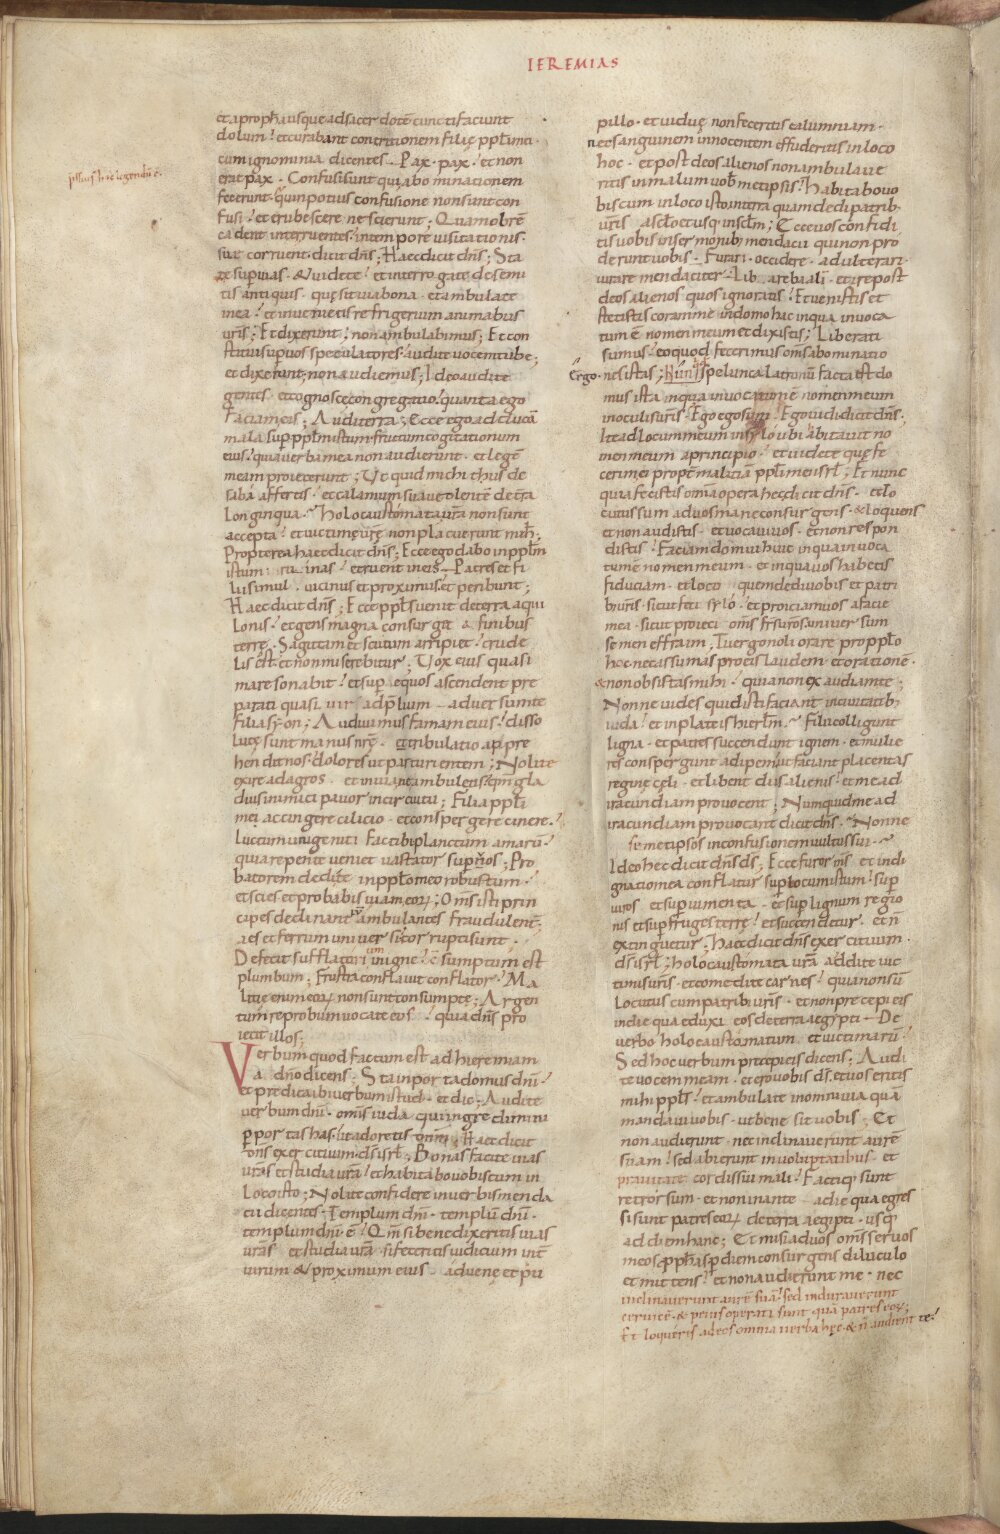 IEREMIAS
et a ꝓph̄a usque ad sacerdotē cuncti faciunt
dolum; et curabant contritionem filię ppl̄i mei
cum ignominia dicentes. Pax pax. et non
erat pax. Confusi sunt qui abominationem
fecerunt. quin potius confusione non sunt con
fusi. et erubescere nescierunt; Quam obrē
cadent inter ruentes. in tempore uisitationis
suae corruent. dicit dn̄s; Haec dicit dn̄s; Sta
te sup uias. & uidete. et interrogate de semi
tis antiquis. quę sit uia bona. et ambulate
in ea. et inuenietis refrigerium animabus
ur̄is; Et dixerunt; non ambulabimus; Et con
stitui sup uos speculatores. audite uocem tubę;
et dixerunt; non audiemus; Ideo audite
gentes. et cognosce congregatio. quanta ego
faciam eis; Audi terra; Ecce ego adducā
mala sup ppl̄m istum. fructum cogitationum
eius. quia uerba mea non audierunt. et legē
meam proiecerunt; Ut quid michi thus de
saba affertis. et calamum suaue olentē de tr̄a
longinqua. Holocaustomata ur̄a non sunt
accepta. et uictimę ur̄ę non placuerunt mih;
Propterea haec dicit dn̄s; Ecce ego dabo in ppl̄m
istum ruinas. et ruent in eis. Patres et fi
lii simul. uicinus et proximus. et peribunt;
Haec dicit dn̄s; Ecce ppl̄s uenit de terra aqui
lonis. et gens magna consurget a finibus
terrę. Sagittam et scutum arripiet. crude
lis est. et non miserebitur; Uox eius quasi
mare sonabit. et sup equos ascendent pre
parati quasi uir ad p̄lium aduersum te
filia syon; Audiuimus famam eius. disso
lutę sunt manus nr̄ę. et tribulatio appre
hendit nos. dolores ut parturientem; Nolite
exire ad agros. et in uia ne ambuletis. qm̄ gla
dius inimici pauor in circuitu; Filia ppl̄i
mei accingere cilicio. et conspergere cinere.
Luctum unigeniti fac tibi planctum amarū.
quia repente ueniet uastator sup nos; Pro
batorem dedi te in ppl̄o meo robustum.
et scies et probabis uiam eoꝝ; Om̄s isti prin
cipes declinantes ambulantes fraudulent̄.
aes et ferrum uniuersi corrupti sunt.
Defecit sufflatori in igne. c̄sumptum est
plumbum; Frustra conflauit conflator. Ma
litię enim eoꝝ non sunt consumptę; Argen
tum reprobum uocate eos. quia dn̄s pro
iecit illos;
Verbum quod factum est ad hieremiam
a dn̄o dicens; Sta in porta domus dn̄i.
et predica ibi uerbum istud. et dic; Audite
uerbum dn̄i. omis iuda qui ingredimini
p portas has. ut adoretis dn̄m; Haec dicit
dn̄s exercituum ds̄ isrl̄; Bonas facite uias
ur̄as et studia ur̄a. et habitabo uobiscum in
loco isto; Nolite confidere in uerbis menda
cii dicentes; Templum dn̄i. templū dn̄i.
templum dn̄i ē. Qm̄ si bene dixeritis uias
ur̄as et studia ur̄a. si feceritis iudicium int̄
uirum & proximum eius. aduenę et pu
pillo. et uiduę non feceritis calumniam.
nec sanguinem innocentem effuderitis in loco
hoc. et post deos alienos non ambulaue
ritis in malum uob metipsis. habitabo uo
biscum in loco isto. in terra quam dedi patrib;
ur̄is a sc̄lo et usq; in sc̄lm; Ecce uos confidi
tis uobis in sermonib; mendacii qui non pro
derunt uobis. Furari. occidere. adulterari.
iurare mendaciter. Libare baali. et ire post
deos alienos quos ignoratis. Et uenistis et
stetistis coram me in domo hac in qua inuoca
tum ē nomen meum et dixistis; Liberati
sumus. eo quod fecerimus om̄s abominatio
Ergo. nes istas; spelunca latronū facta est do
mus ista in qua inuocatum ē nomen meum
in oculis ur̄is. Ego ego sum. Ego uidi dicit dn̄s.
Ite ad locum meum in sylo ubi abitauit no
men meum a principio. et uidete quę fe
cerim ei propt malitiam ppl̄i mei isrl̄; Et nunc
quia fecistis om̄a opera hec. dicit dn̄s. et lo
cutus sum ad uos mane consurgens. & loquens
et non audistis. et uocaui uos. et non respon
distis. Faciam domui huic in qua inuoca
tum ē nomen meum. et in qua uos habetis
fiduciam. et loco quem dedi uobis et patri
b; uris. sicut feci sylo. et proiciam uos a facie
mea. sicut proieci om̄s fr̄s uros. uniuersum
semen effraim. Tu ergo noli orare pro ppl̄o
hoc. nec assumas pro eis laudem et orationē.
& non obsistas mihi. quia non exaudiam te;
Nonne uides quid isti faciant in ciuitatib;
iuda. et in plateis hierl̄m. Filii colligunt
ligna. et patres succendunt ignem. et mulie
res conspergunt adipem. ut faciant placentas
reginę cęli. et libent diis alienis. et me ad
iracundiam prouocent; Numquid me ad
iracundiam prouocant dicit dn̄s. Nonne
semetipsos in confusionem uultus sui.
Ideo hec dicit dn̄s ds̄; Ecce furor m̄s et indi
gnatio mea conflatur sup locum istum. sup
uiros et sup iumenta. et sup lignum regio
nis et sup fruges terrę. et succendetur. et n̄
extinguetur; Haec dicit dn̄s exercituum.
ds̄ isrl̄; holocaustomata ur̄a addite uic
timis uris. et comedite carnes. quia non sū
locutus cum patrib; uris. et non precepi eis
in die qua eduxi eos de terra aegypti. De
uerbo holocaustomatum et uictimarū.
Sed hoc uerbum precepi eis dicens; Audi
te uocem meam. et ero uobis ds̄. et uos eritis
mihi ppl̄s. et ambulate in omni uia quā
mandaui uobis. ut bene sit uobis; Et
non audierunt. nec inclinauerunt aurē
suam. sed abierunt in uoluptatibus et
prauitate cordis sui mali. Factiq; sunt
retrorsum. et non in ante a die qua egres
si sunt patres eoꝝ de terra aegipti. usq;
ad diem hanc; Et misi ad uos om̄s seruos
meos. ꝓph̄as p diem consurgens diluculo
et mittens. et non audierunt me. nec
inclinauerunt aurē suā. sed indurauerunt
ceruicē. & peius operati sunt quā patres eoꝝ;
Et loqueris ad eos omnia uerba hęc. & n̄ audient te.